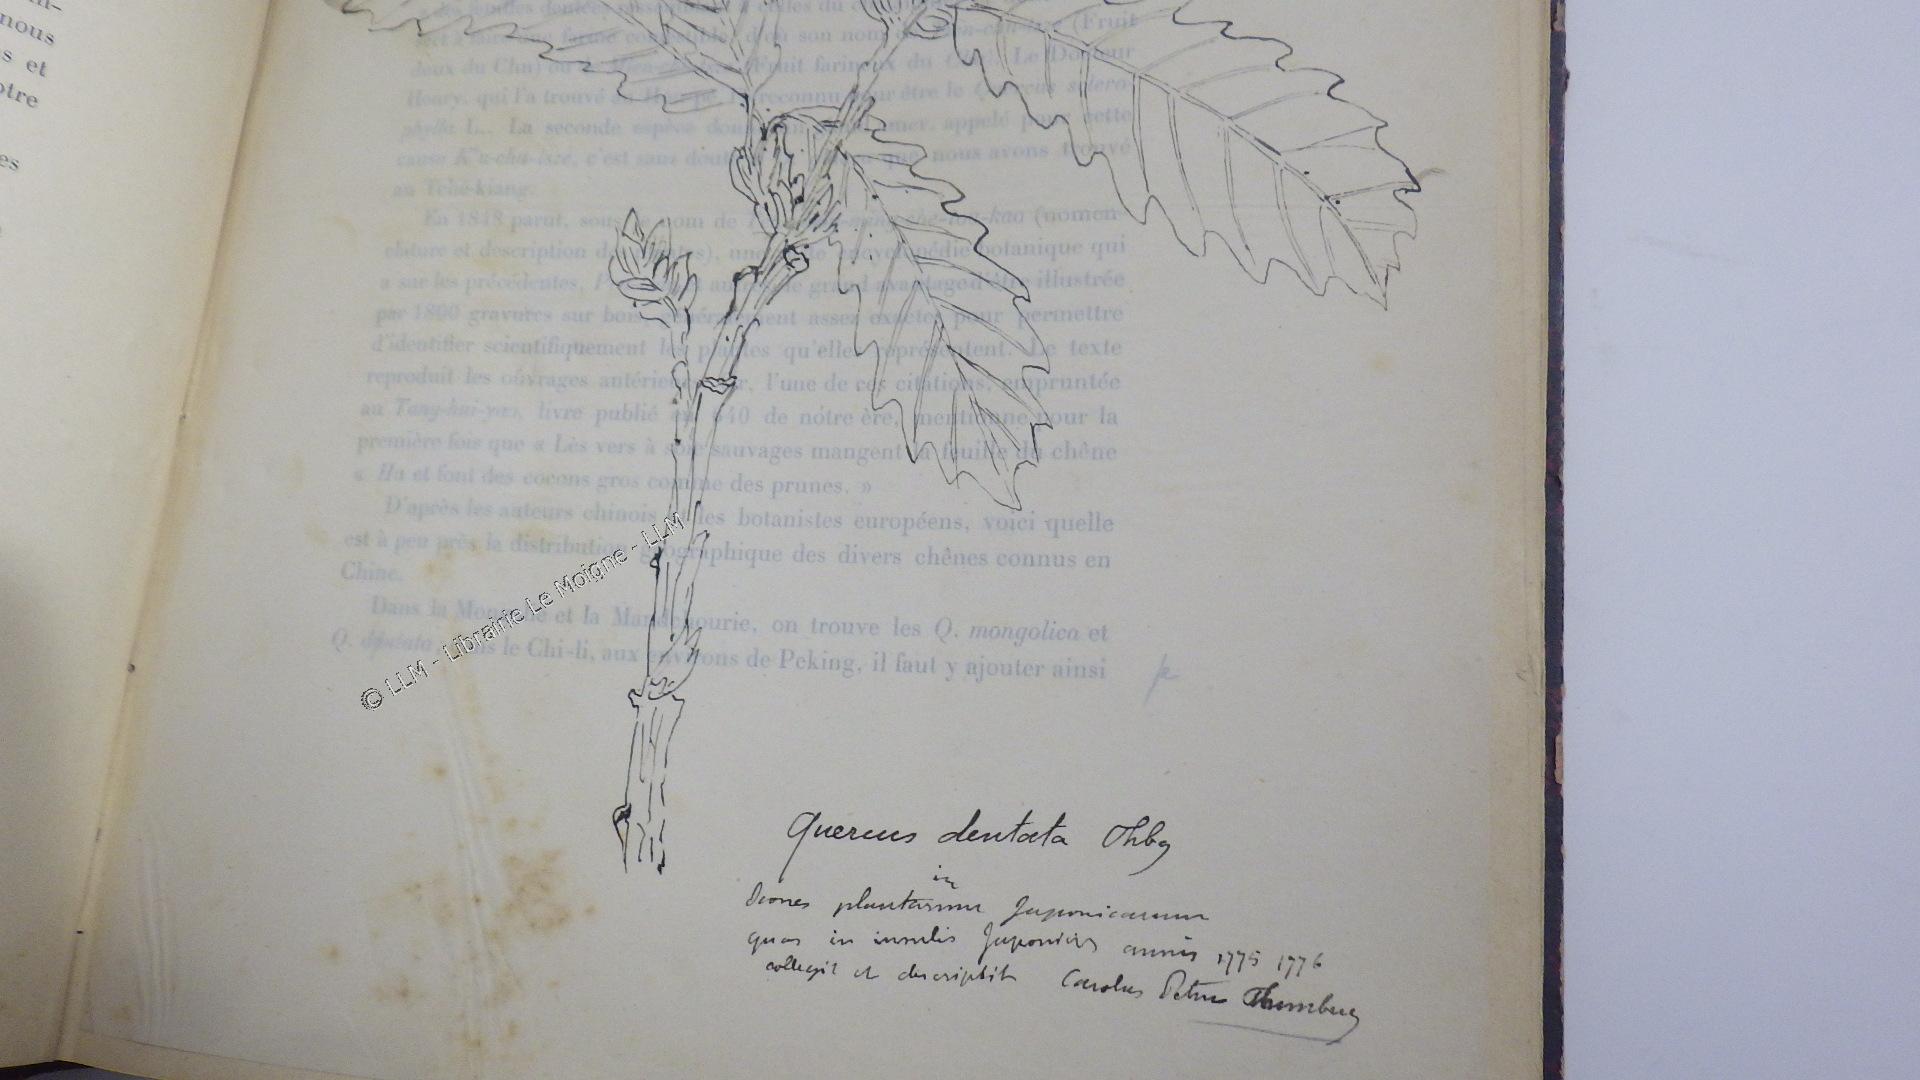 nous
s et
otre
es
« les feuilles dentées
sert à faire une farine comestible, d'où son nom de (Fruit
doux du Chu) ou de (Fruit farineux du Chu). Le Docteur
Henry, qui l'a trouvé au reconnu pour être le Quercus sclero-
phylla L.. La seconde espèce amer, appelé pour cette
cause K'u-chu-tsze, c'est sans doute que nous avons trouvé
au Tché-kiang.
En 1848 parut, sous le nom de (nomen-
clature et description des plantes), une encyclopédie botanique qui
a sur les précédentes, le grand avantage d'être illustrée
par 1800 gravures sur bois, généralement assez exactes pour permettre
d'identifier scientifiquement les plantes qu'elles représentent. Le texte
reproduit les ouvrages antérieurs, l'une de ces citations, empruntée
au Tang-hui-yao, livre publié en 640 de nôtre ère, mentionne pour la
première fois que « Lès vers à soie sauvages mangent la feuille du chêne
« Hu et font des cocons gros comme des prunes. »
D'après les auteurs chinois et les botanistes européens, voici quelle
est à peu près la distribution géographique des divers chênes connus en
Chine.
Dans la Mongolie et la Mandchourie, on trouve les Q. mongolica et
Q. dentata, dans le Chi-li, aux environs de Peking, il faut y ajouter ainsi
© LLM - Librairie Le Moigne - LLM
Quercus dentata Thbg
in
Icones plantarum Japonicarum
quas in insulis Japonicis annis 1775 1776
collegit et descripsit Carolus Petrus Thunberg